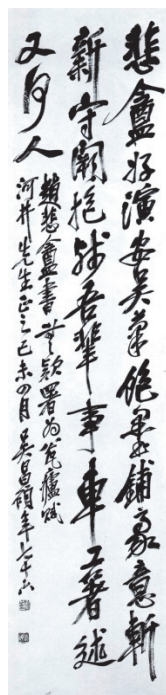 悲盦好演安吳筆飽墨鋪豪意斬
新守闕抱殘吾輩事專工著述
又何人
趙悲盦書無款署為瓮廬賦
河井先生正之己未四月吳昌碩年七十六